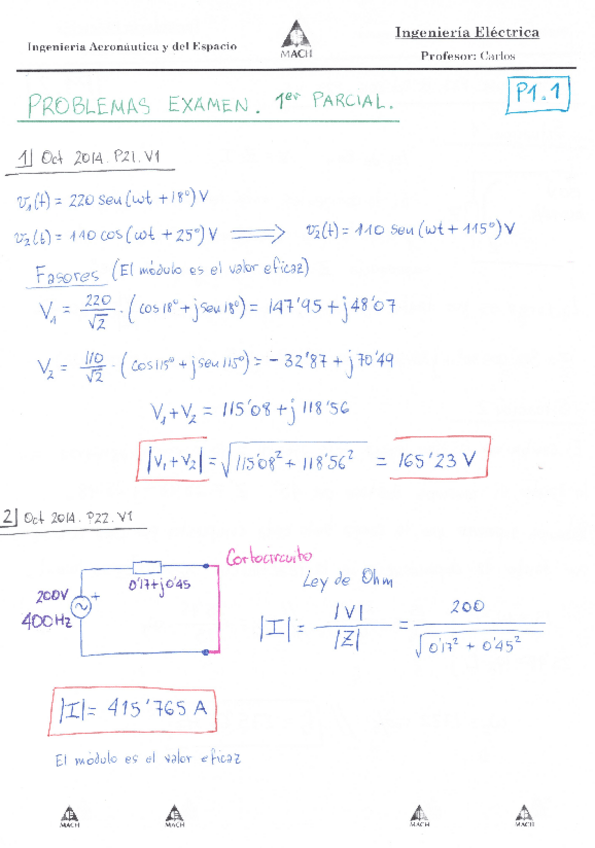 Ingeniería Aeronáutica y del Espacio
MACH
Ingeniería Eléctrica
Profesor: Carlos
PROBLEMAS EXAMEN. 1er PARCIAL.
P1.1
1] Oct 2014. P21. V1
v₁(t) = 220 sen (ωt + 18º) V
v₂(t) = 110 cos (ωt + 25º) V ⟹ v₂(t) = 110 sen (ωt + 115º) V
Fasores (El módulo es el valor eficaz)
V₁ = 220/√2 · (cos 18º + j sen 18º) = 147'95 + j 48'07
V₂ = 110/√2 · (cos 115º + j sen 115º) = - 32'87 + j 70'49
V₁ + V₂ = 115'08 + j 118'56
|V₁ + V₂| = √(115'08² + 118'56²) = 165'23 V
2] Oct 2014. P22. V1
Cortocircuito
0'17+j0'45
200V
+
400Hz
Ley de Ohm
|I| = |V|/|Z| = 200/√(0'17² + 0'45²)
|I| = 415'765 A
El módulo es el valor eficaz
MACH MACH MACH MACH